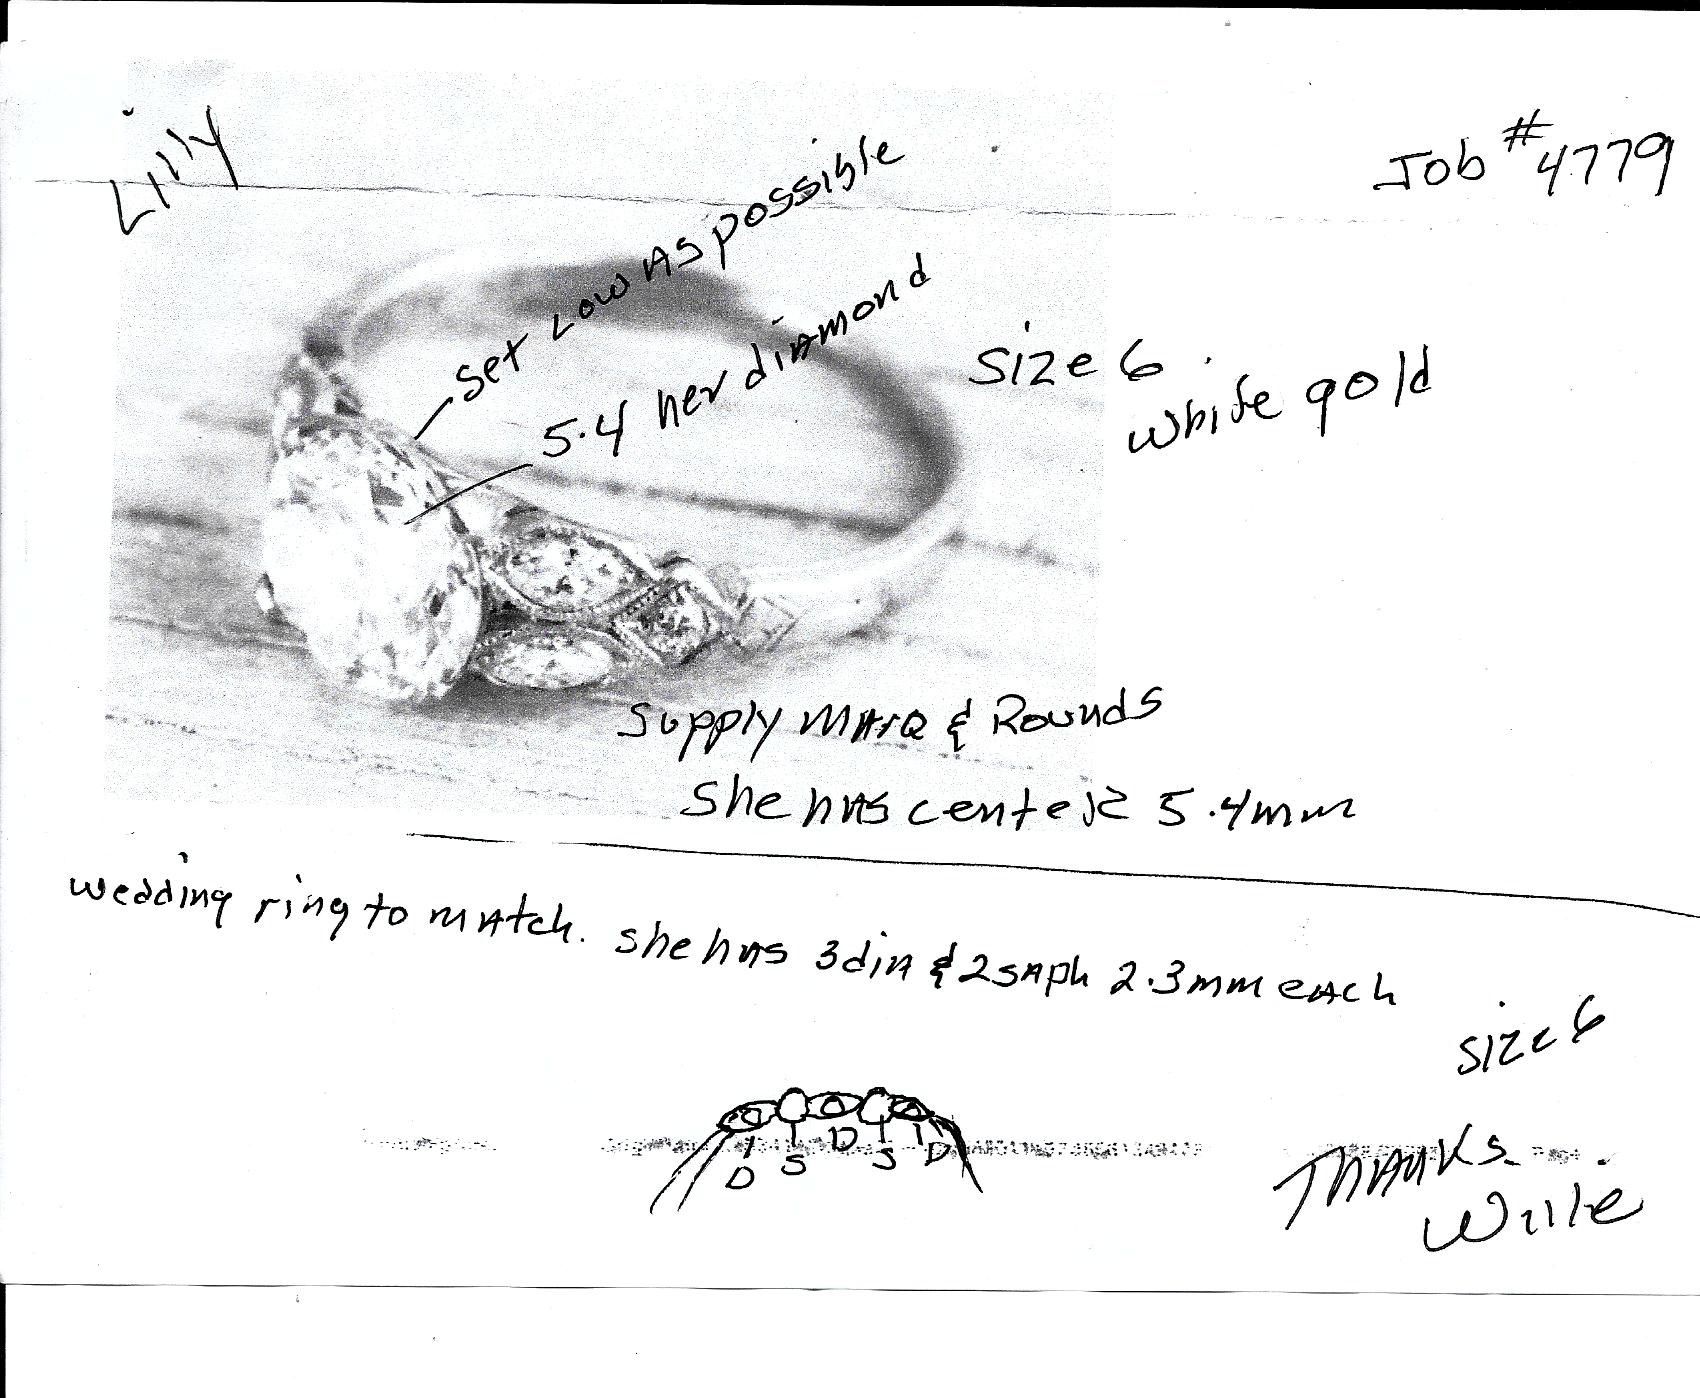 Lilly
Job #4779
set Low As possible
5.4 her diamond
size 6
white gold
supply marq & Rounds
she has center 5.4mm
wedding ring to match. she has 3 dia & 2 saph 2.3mm each
size 6
D S D S D
Thanks.
Willie